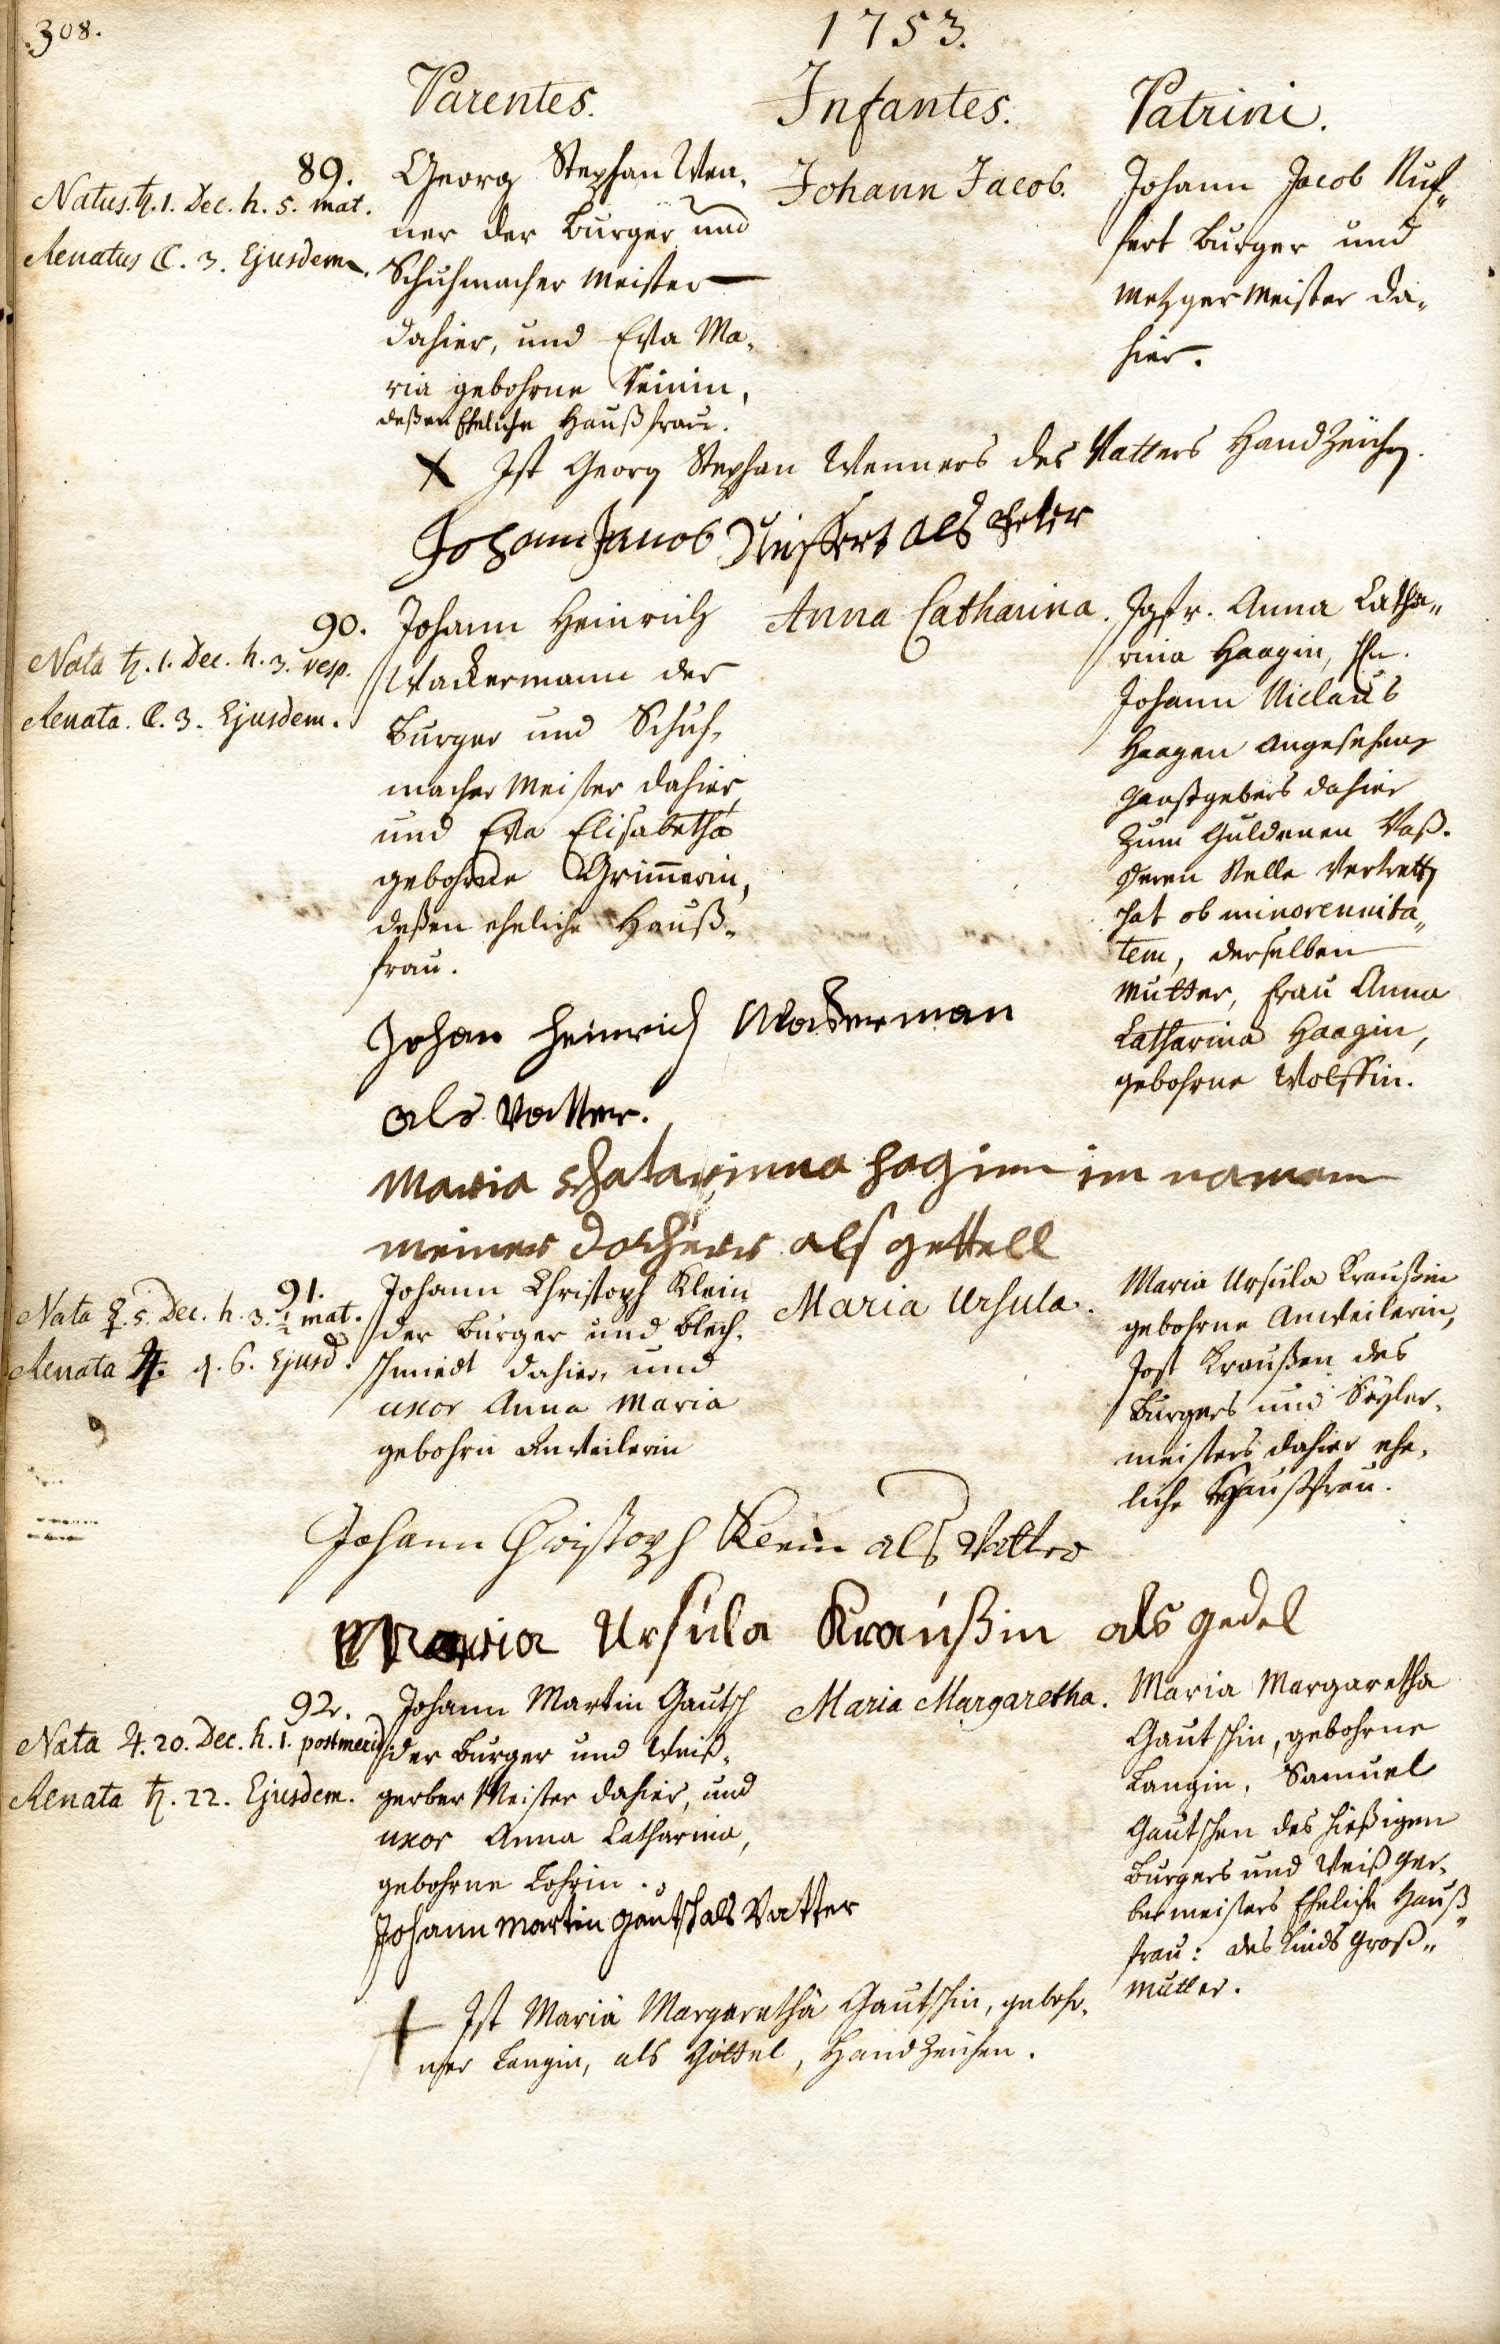 308.
1753.
Parentes. Infantes. Patrini.
89.
Natus. ♄. 1. Dec. h. 5. mat.
Renatus ☾. 3. Ejusdem.
Georg Stephan Wen„
ner der Burger und
Schuhmacher Meister
dahier, und Eva Ma„
ria gebohrne
deßen Eheliche Haußfrau.
Johann Jacob.
Johann Jacob Ruf„
fert Burger und
Metzger Meister da„
hier.
X Ist Georg Stephan Wenners des Vatters Handzeichen.
Johann Jacob als
90.
Nata ♄. 1. Dec. h. 3. vesp.
Renata. ☾. 3. Ejusdem.
Johann Heinrich
Wackermann der
Burger und Schuh„
macher Meister dahier,
und Eva Elisabetha
gebohrne Grim̄erin,
deßen eheliche Hauß„
frau.
Anna Catharina.
Jgfr. Anna Catha„
rina Haagin, Hn.
Johann Niclaus
Haagen angesehenen
Gaastgebers dahier
zum Guldenen
deren Stelle vertretten
hat ob minorennita„
tem, derselben
Mutter, Frau Anna
Catharina Haagin,
gebohrne Wolffin.
Johan Heinrich Wackerman
als Vatter.
Maria Chatarinna Hagin im namen
meiner dochter als gettell
91.
Nata ☿. 5. Dec. h. 3. ½ mat.
Renata ♃. d. 6. Ejusd.
Johann Christoph Klein
der Burger und Blech„
schmiedt dahier, und
uxor Anna Maria
gebohrn Anweilerin
Maria Ursula.
Maria Ursula Kraußin
gebohrne Anweilerin,
Jost Kraußen des
Burgers und Seyler„
meisters dahier ehe„
liche Haußfrau.
Johann Christoph Klein als Vatter
Maria Ursula Kraußin als gedel
92.
Nata ♃. 20. Dec. h. 1. postmerid
Renata ♄. 22. Ejusdem.
Johann Martin Gautsch
der Burger und Weiß„
gerber Meister dahier, und
uxor Anna Catharina,
gebohrne Lohrin.
Maria Margaretha.
Maria Margaretha
Gautschin, gebohrne
Langin, Samuel
Gautschen des hießigen
Burgers und Weißger„
bermeisters Eheliche Hauß„
frau: des Kinds Groß„
mutter.
Johann Martin Gautsch als Vatter
+ Ist Mariä Margarethä Gautschin, gebohr„
ner Langin, als Göttel, Handzeichen.